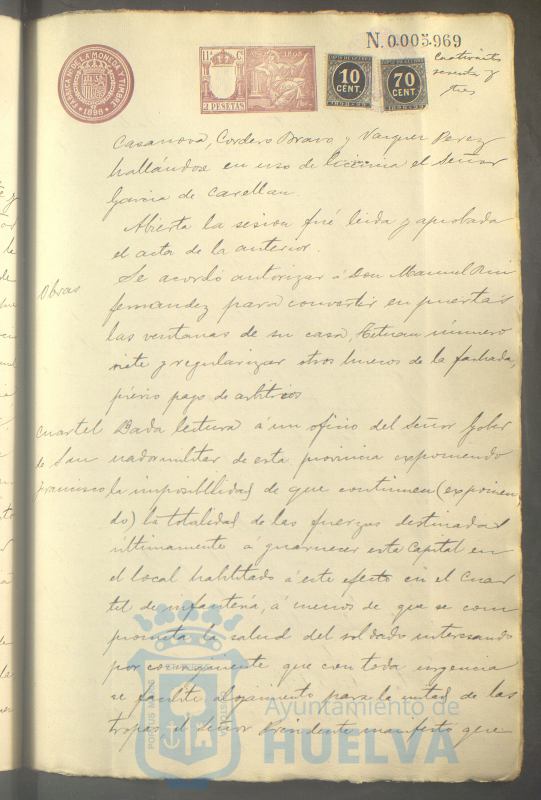 N. 0.005.969
Cuatrocientos
sesenta y
tres
FÁBRICA NAL. DE LA MONEDA Y TIMBRE
1898
11ª C.
2 PESETAS
10
CENT.
70
CENT.
Casanova, Cordero Bravo y Vazquez Perez
hallándose en uso de licencia el Señor
Garcia de
Abierta la sesion fué leida y aprobada
el acta de la anterior.
Obras
Se acordó autorizar á Don Manuel Rui
fernandez para convertir en puertas
las ventanas de su casa, Tetuan número
siete y regularizar otros huecos de la fachada,
prévio pago de arbitrios
Cuartel
de San
Francisco
Dada lectura á un oficio del Señor Gober
nador militar de esta provincia exponiendo
la imposibilidad de que continuen (exponien
do) la totalidad de las fuerzas destinadas
últimamente á guarnecer esta Capital en
el local habilitado á este efecto en el Cuar
tel de infantería, á menos de que se com
prometa la salud del soldado interesando
por consiguiente que con toda urgencia
se facilite alojamiento para la mitad de las
tropas el Señor Presidente manifestó que
Ayuntamiento de
HUELVA